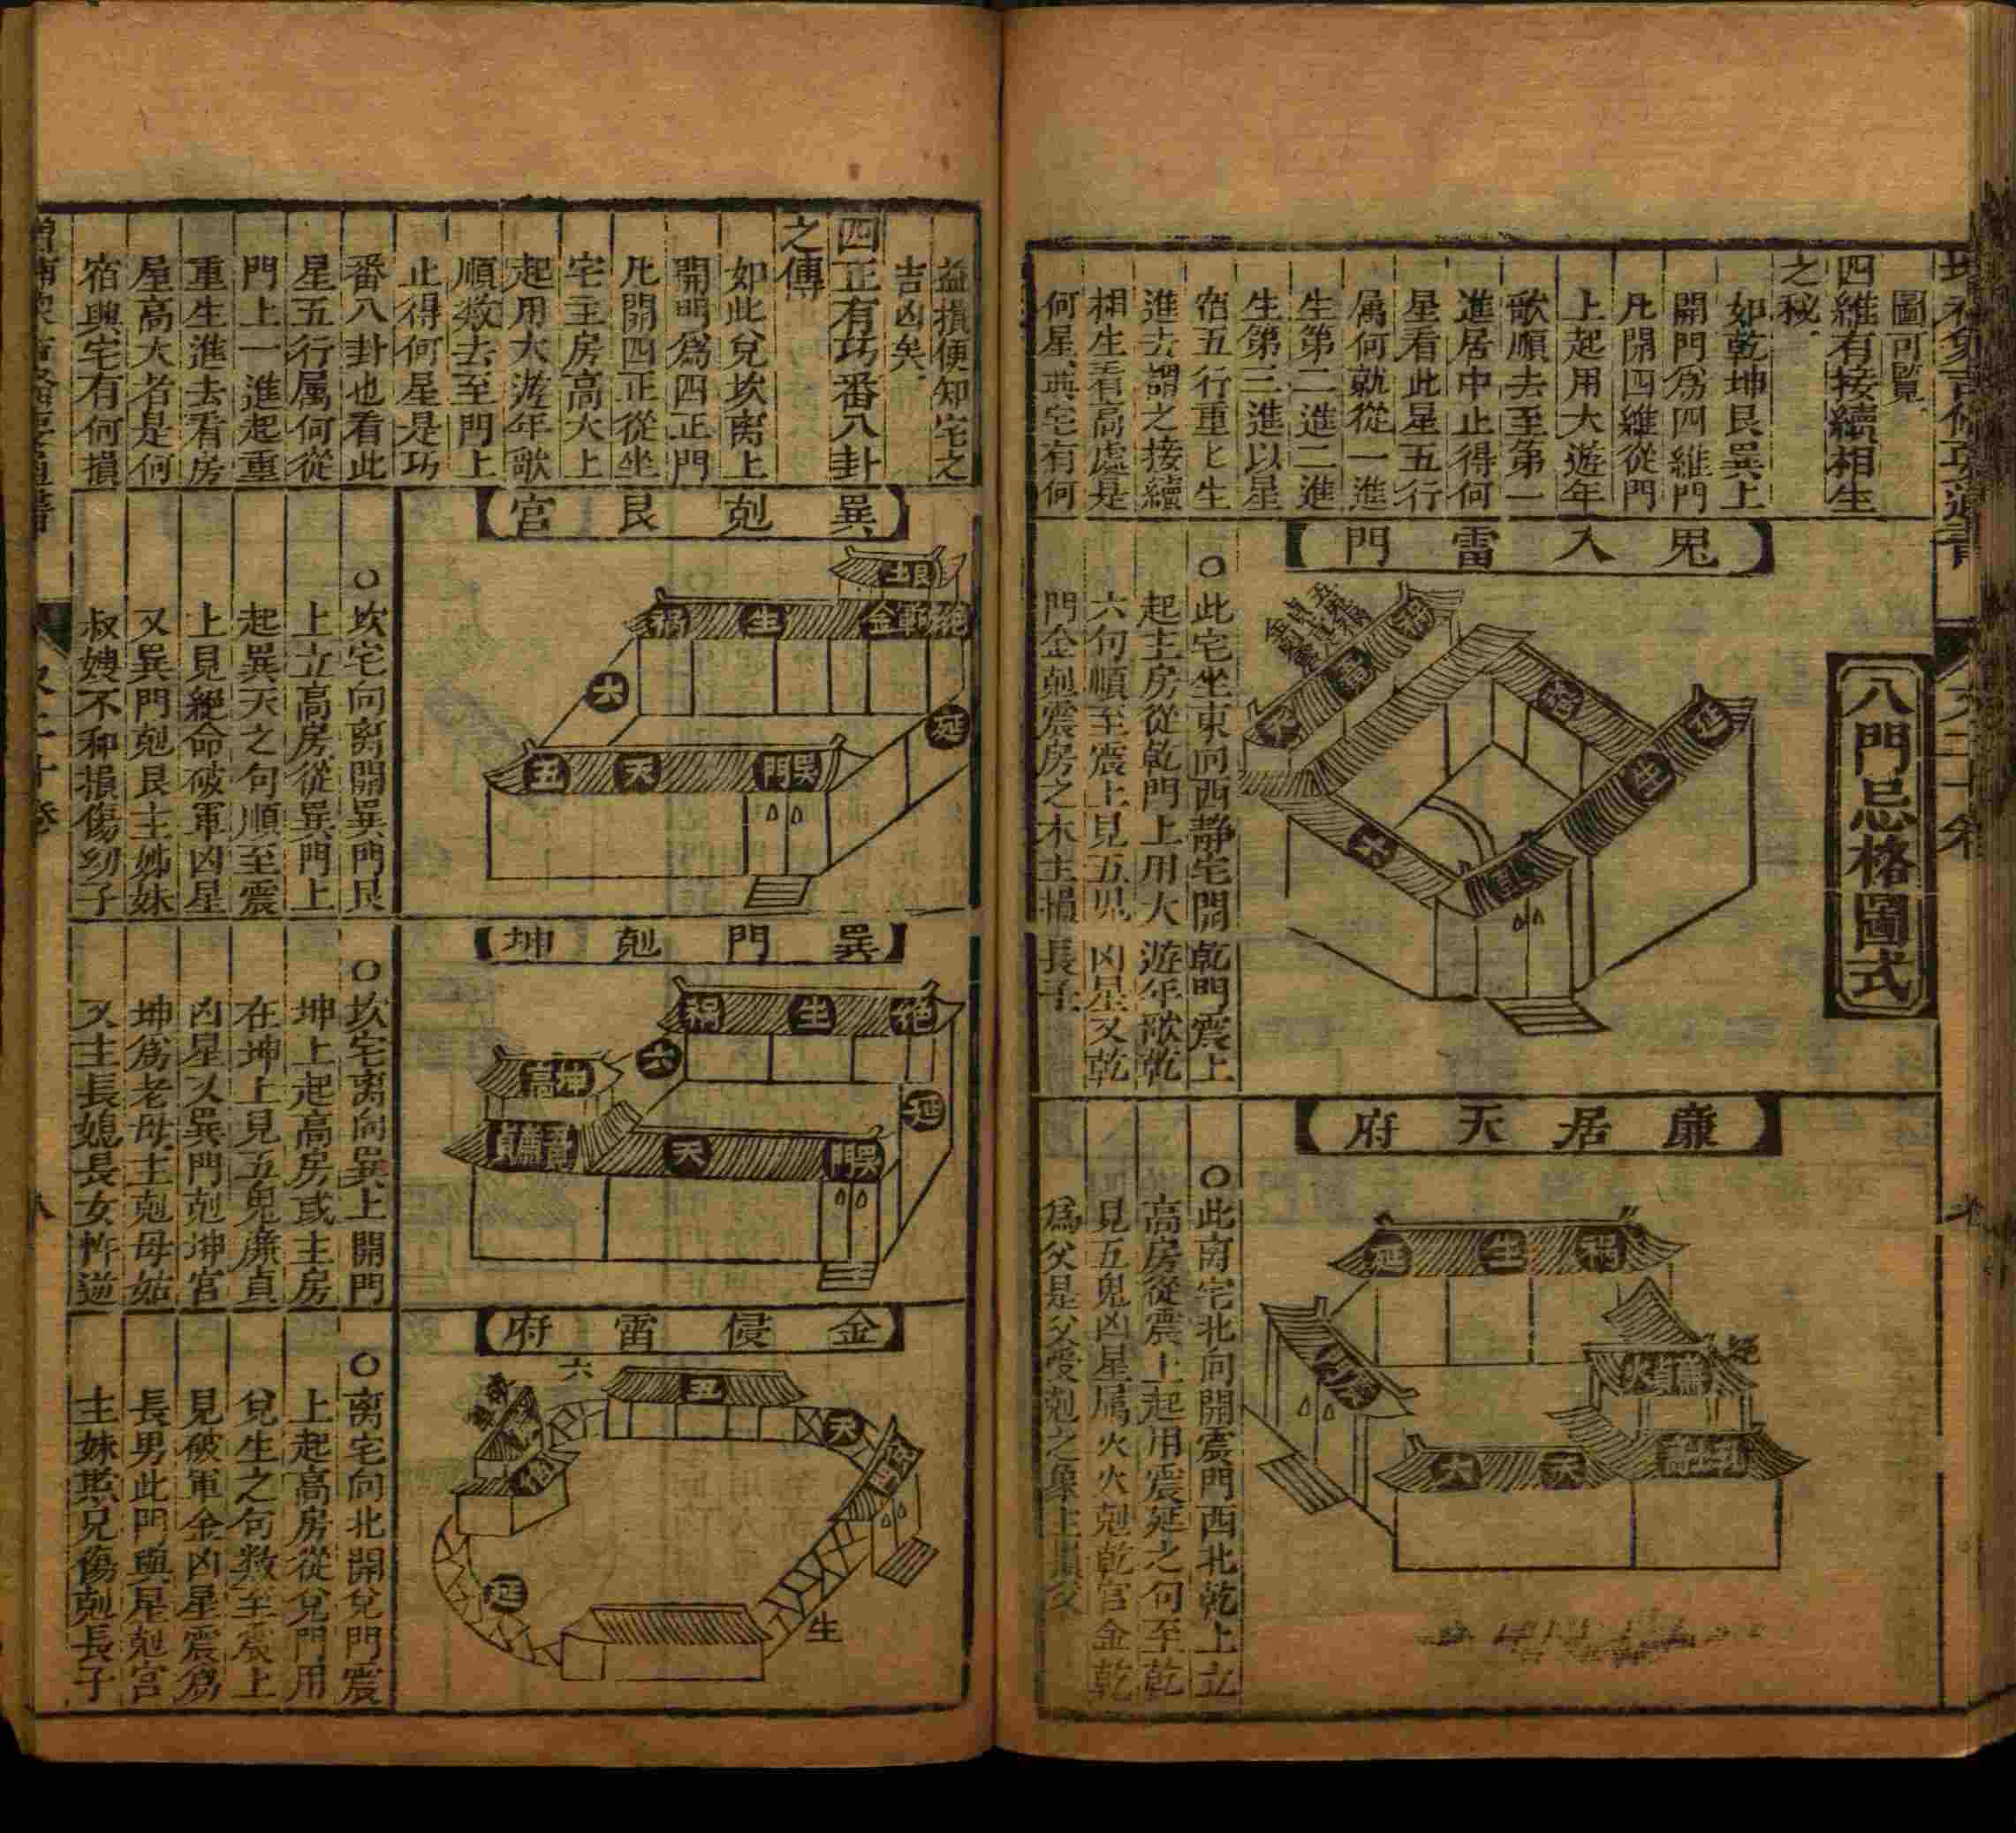 圖可覽
四維有接續相生
之秘
如乾坤艮巽上
開門爲四維門
凡開四維從門
上起用大遊年
歌順去至第一
進居中止得何
星看此星五行
属何就從一進
生第二進二進
生第三進以星
宿五行重匕生
進去謂之接續
相生看高處是
何星與宅有何
八門忌格圖式
鬼入雷門
○此宅坐東向西靜宅開乾門震上
起主房從乾門上用大遊年歌乾
六句順至震上見五鬼凶星又乾
門金剋震房之木主損長子
延
生
六
廉居天府
○此南宅北向開震門西北乾上立
高房從震上起用震延之句至乾
見五鬼凶星属火火剋乾宫金乾
爲父是父受剋之象主損父
禍
生
延
天
六
益損便知宅之
吉凶矣
四正有巧番八卦
之傳
如此兌坎离上
開門爲四正門
凡開四正從坐
宅主房高大上
起用大遊年歌
順数去至門上
止得何星是巧
番八卦也看此
星五行属何從
門上一進起重
重生進去看房
屋高大者是何
宿與宅有何損
巽剋艮宮
○坎宅向离開巽門艮
上立高房從巽門上
起巽天之句順至震
上見絕命破軍凶星
又巽門剋艮主姊妹
叔嫂不和損傷幼子
生
禍
六
延
巽門
天
五
巽門剋坤
○坎宅离向巽上開門
坤上起高房或主房
在坤上見五鬼廉貞
凶星又巽門剋坤宫
坤爲老母主剋母姑
又主長媳長女忤逆
絶
生
禍
六
坤高
延
巽門
天
金侵雷府
○离宅向北開兌門震
上起高房從兌門用
兌生之句数至震上
見破軍金凶星震爲
長男此門與星剋宫
主妹欺兄傷剋長子
六
五
天
延
生